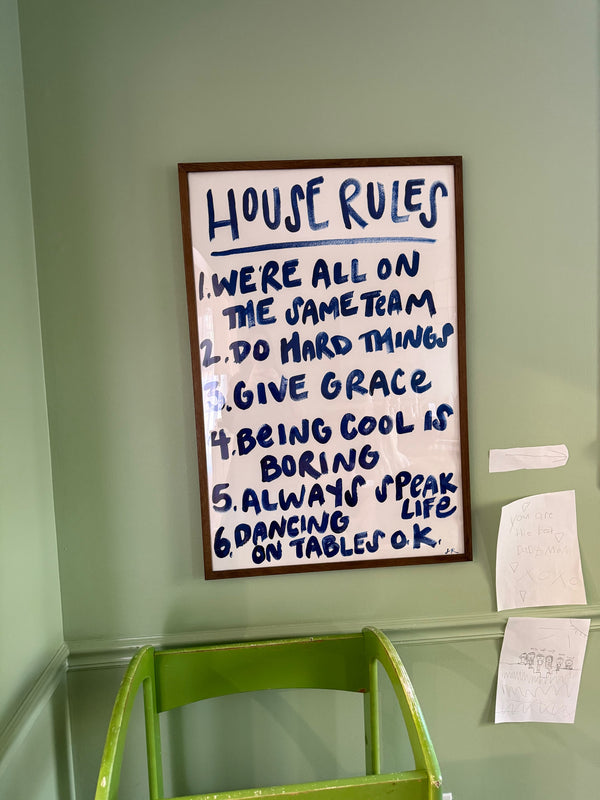 HOUSE RULES
1. WE'RE ALL ON
THE SAME TEAM
2. DO HARD THINGS
3. GIVE GRACE
4. BEING COOL IS
BORING
5. ALWAYS SPEAK
LIFE
6. DANCING
ON TABLES O.K.
you are
the
xoxo